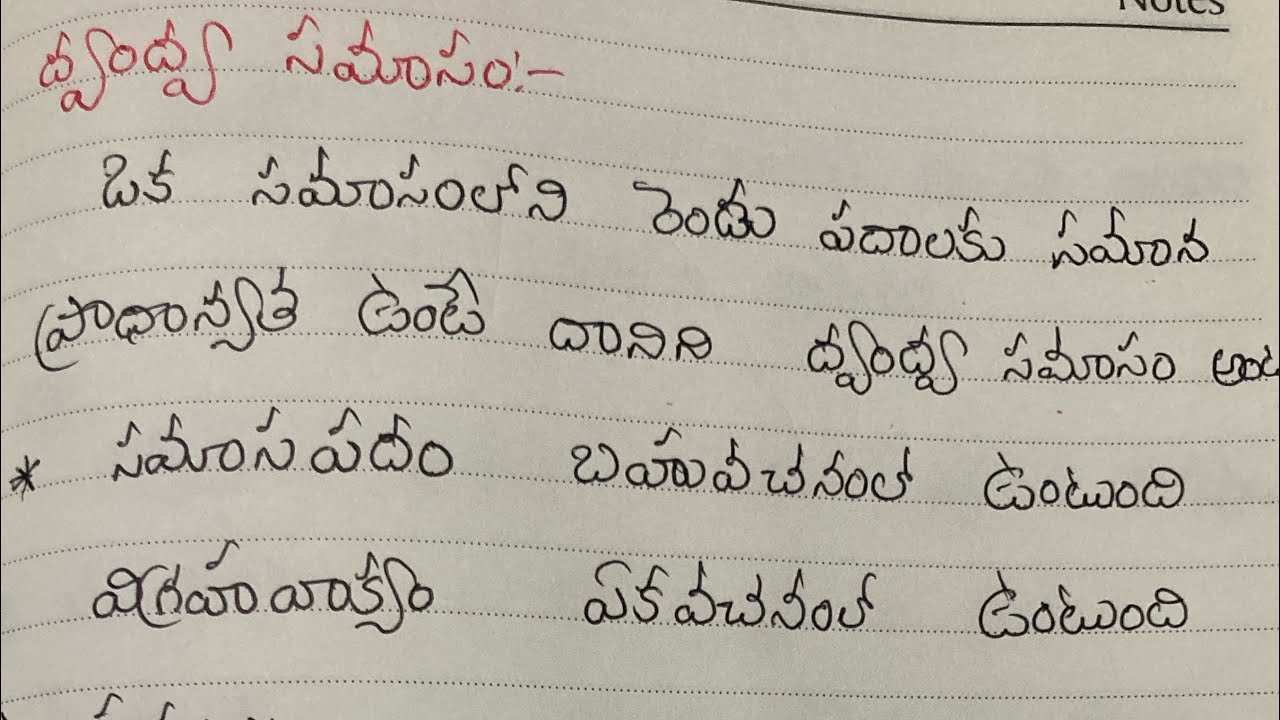 Notes
ద్వంద్వ సమాసం:-
ఒక సమాసంలోని రెండు పదాలకు సమాన
ప్రాధాన్యత ఉంటే దానిని ద్వంద్వ సమాసం
* సమాస పదం బహువచనంలో ఉంటుంది
విగ్రహవాక్యం ఏకవచనంలో ఉంటుంది